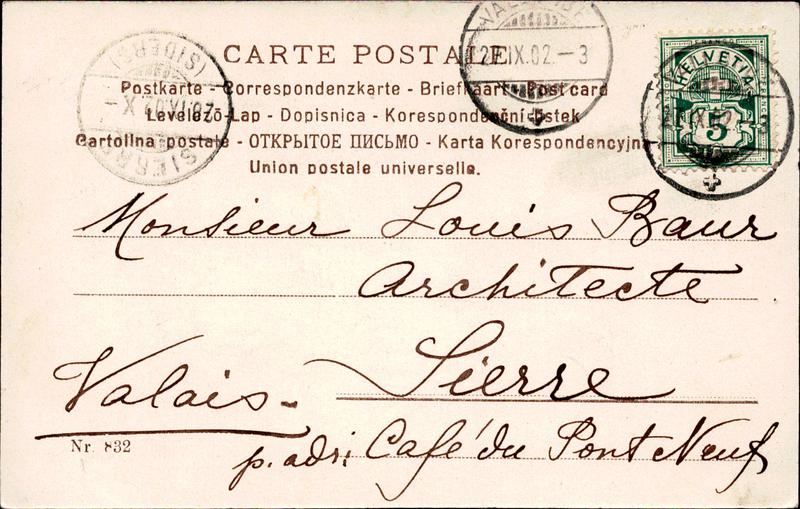 CARTE POSTALE
Postkarte - Correspondenzkarte - Briefkaart - Post card
Levelező-Lap - Dopisnica - Korespondenční lístek
Cartolina postale - ОТКРЫТОЕ ПИСЬМО - Karta Korespondencyjna
Union postale universelle.
(SIDERS)
SIERRE
IX.02.-3
HELVETIA
5
Monsieur Louis Baur
Architecte
Sierre
Valais-
Nr. 832
p. adr: Café du Pont Neuf